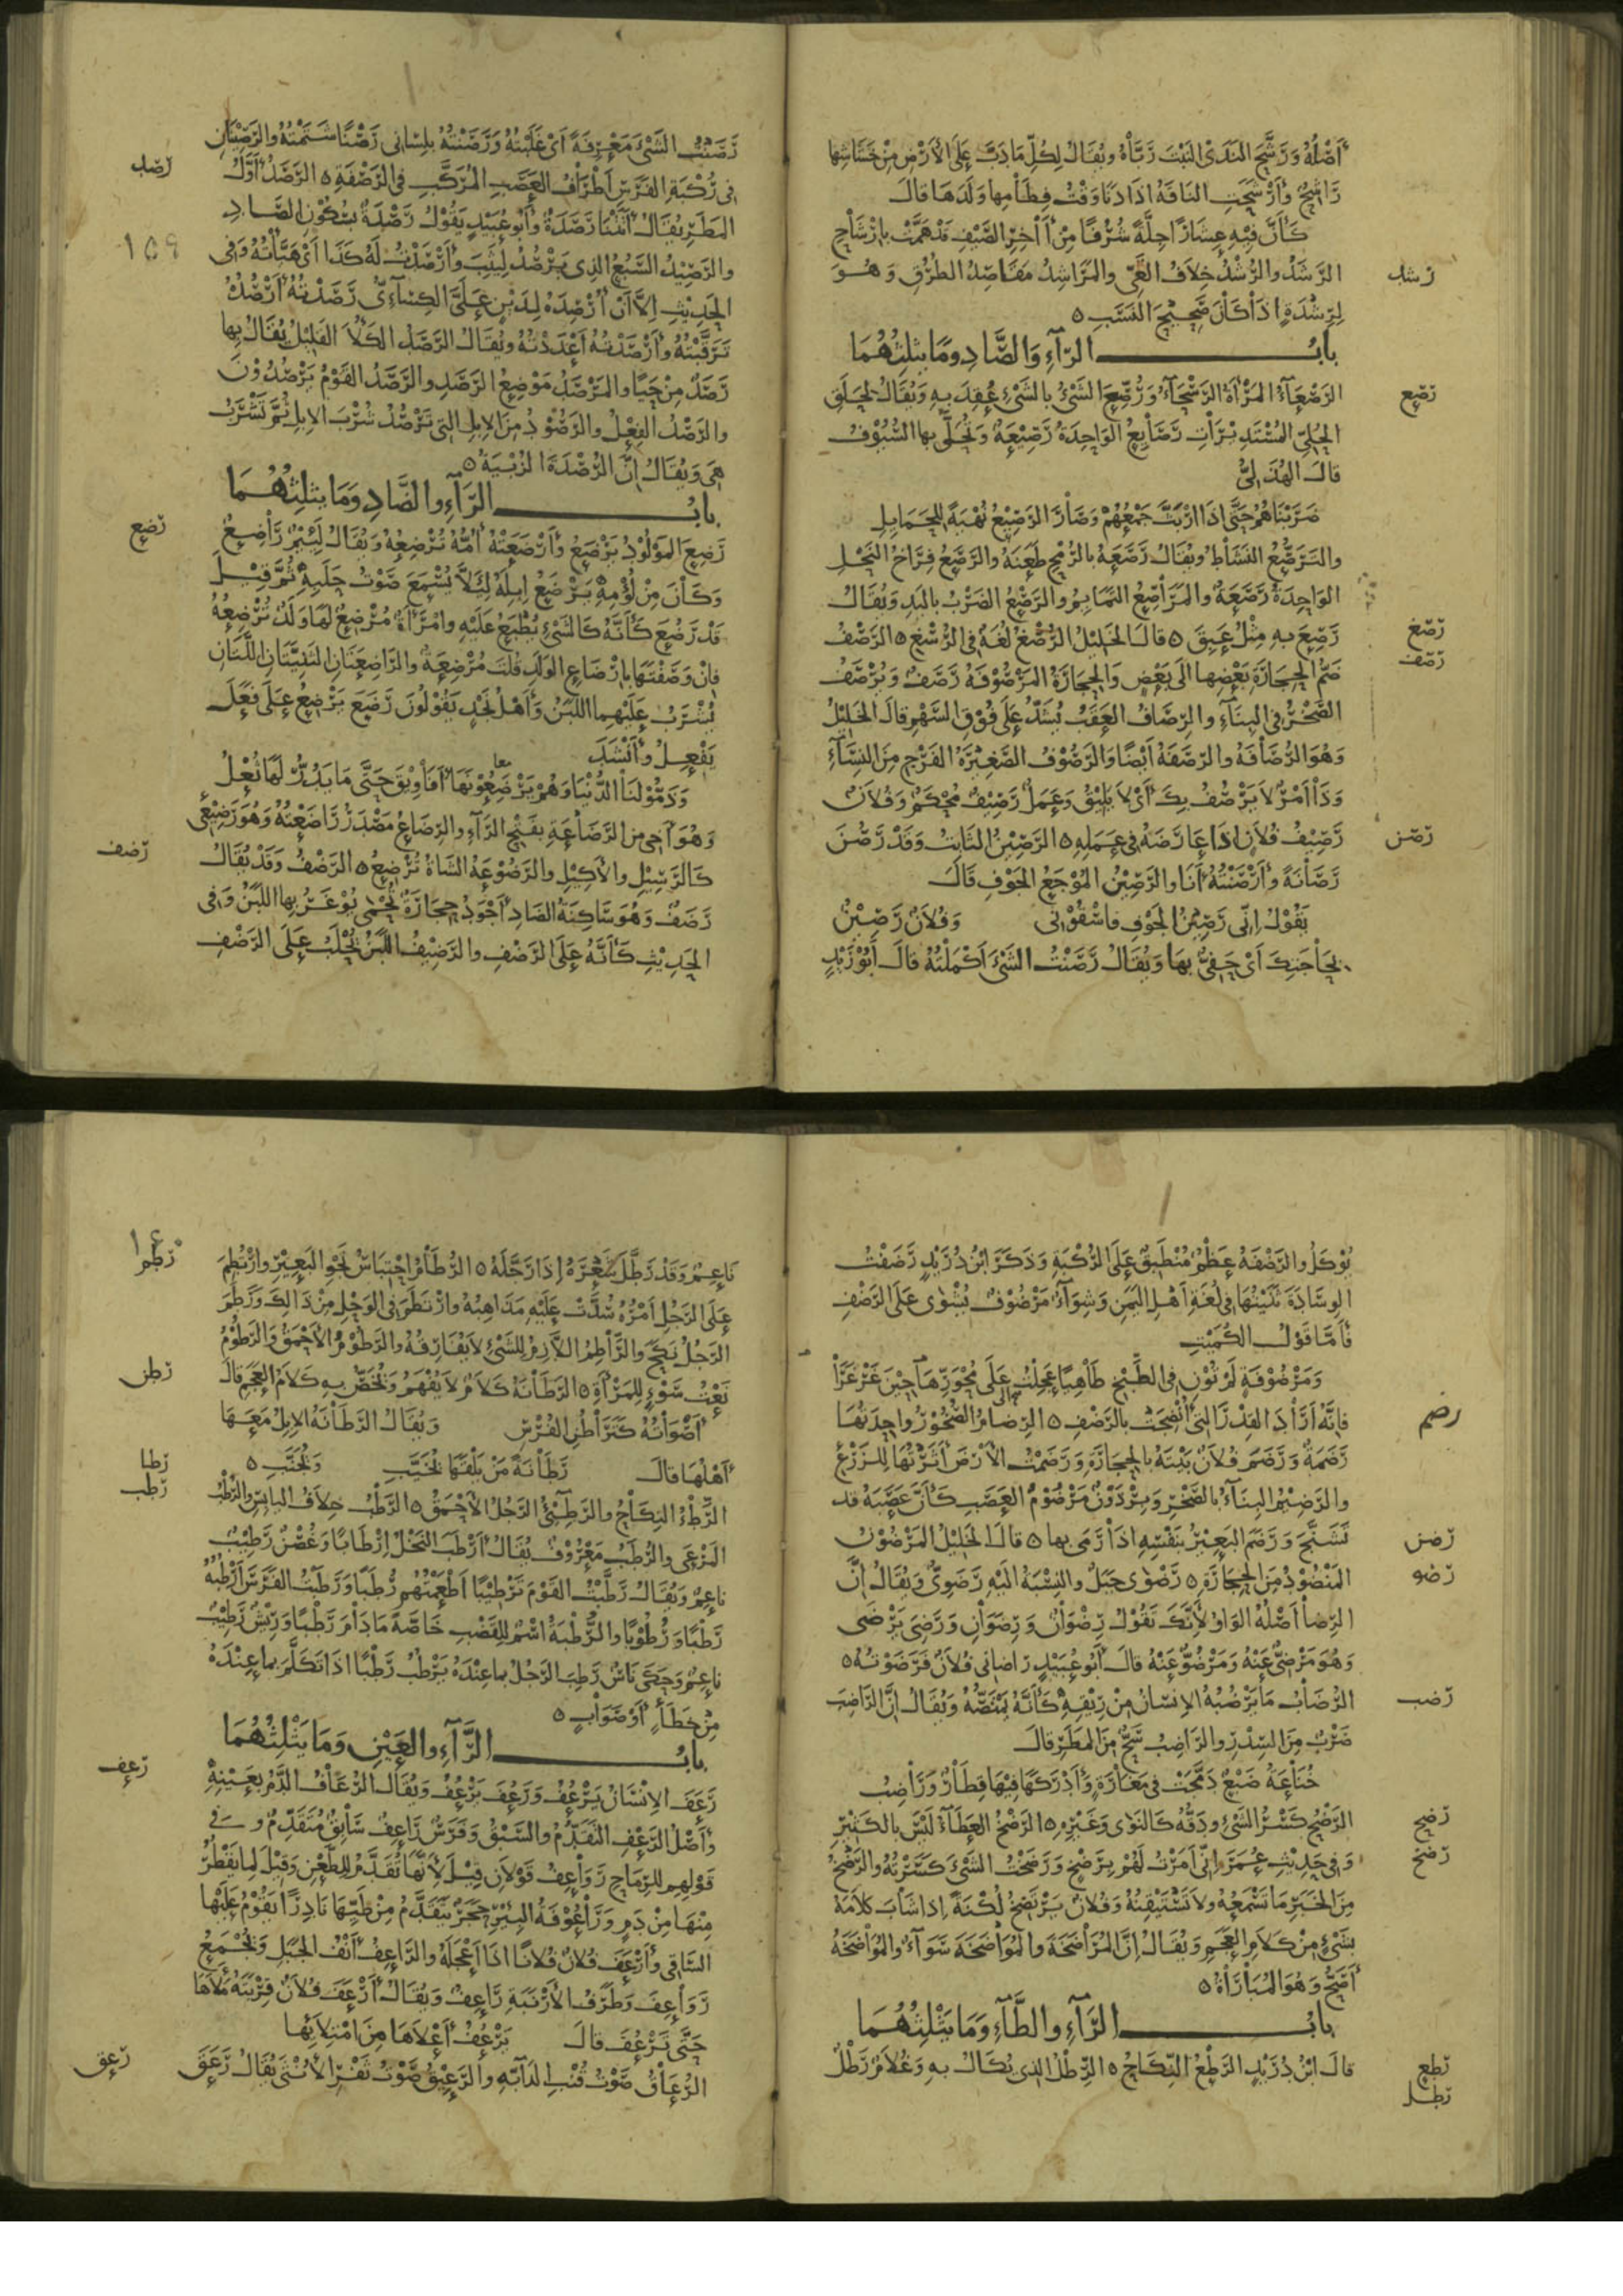 أَصْلُهُ وَرَشَّحَ النَّدَى النَّبْتَ رَبَّاهُ وَيُقَالُ لِكُلِّ مَا دَبَّ عَلَى الأَرْضِ مِنْ خَشَاشِهَا
رَاشِحٌ وَأَرْشَحَتِ النَّاقَةُ اذَا دَنَا وَقْتُ فِطَامِهَا وَلَدَهَا قَالَ
كَأَنَّ فِيهِ عِشَارًا جِلَّةً شُرُفًا مِنْ آخِرِ الصَّيْفِ قَدْ هَمَّتْ بِارْشَاحِ
رشد
الرَّشَدُ والرُّشْدُ خِلَافُ الغَيِّ والمَرَاشِدُ مَقَاصِدُ الطُّرُقِ وَهُوَ
لِرِشْدَةٍ اذَا كَانَ صَحِيحَ النَّسَبِ ٥
بابُ الرَّاءِ وَالصَّادِ وَمَا يثلِثُهُمَا
رصع
الرَّصْعَاءُ المَرْأَةُ الرَّسْحَاءُ وَرُصِّعَ الشَّىْءُ بالشَّىْءِ عُقِدَ بِهِ وَيُقَالُ لِحَلَقِ
الحُلِيِّ المُسْتَدِيرَاتِ رَصَايِعُ الوَاحِدَةُ رَصِيْعَةٌ وَتُحَلَّى بها السُّيُوْفُ
قالَ الهُذَلِىُّ
ضَرَبْنَاهُمُ حَتَّى اذَا ارْبَثَّ جَمْعُهُمْ وَصَارَ الرَّصِيْعُ نُهْبَةً لِلْحَمَايِلِ
والتَّرَصُّعُ النَّشَاطُ وَيُقَالُ رَصَعَهُ بالرُّمْحِ طَعَنَهُ والرَّصَعُ فِرَاخُ النَّحْلِ
الوَاحِدَةُ رَصَعَةٌ والمَرَاصِعُ التَّمَايِمُ والرَّصْعُ الضَّرْبُ بالْيَدِ وَيُقَالُ
رصغ
رَصِعَ بِهِ مِثْلُ عَبِقَ ٥ قالَ الخَلِيْلُ الرُّصْغُ لُغَةٌ فِى الرُّسْغِ ٥ الرَّصْفُ
رصف
ضَمُّ الحِجَارَةِ بَعْضِهَا الَى بَعْضٍ وَالحِجَارَةُ المَرْصُوْفَةُ رَصَفٌ وَيُرْصَفُ
الصَّخْرُ فِى البِنَاءِ والرِّصَافُ العَقَبُ يُشَدُّ عَلَى فُوْقِ السَّهْمِ قالَ الخَلِيْلُ
وَهُوَ الرُّصَافَةُ والرَّصَفَةُ أَيْضًا وَالرَّصُوْفُ الصَّغِيْرَةُ الفَرْجِ مِنَ النِّسَاءِ
وَذَا أَمْرٌ لَا يَرْصُفُ بِكَ أَىْ لَا يَلِيْقُ وَعَمَلٌ رَصِيْفٌ مُحْكَمٌ وَفُلَانٌ
رصن
رَصِيْفُ فُلَانٍ اذَا عَارَضَهُ فِى عَمَلِهِ ٥ الرَّصِيْنُ الثَّابِتُ وَقَدْ رَصُنَ
رَصَانَةً وَأَرْصَنْتُهُ أَنَا وَالرَّصِيْنُ المُوْجَعُ الجَوْفِ قَالَ
يَقُوْلُ انِّى رَصِيْنُ الجَوْفِ فاسْقُوْنِى وَفُلَانٌ رَصِيْنٌ
بِحَاجَتِكَ أَىْ حَفِىٌّ بهَا وَيُقَالُ رَصَنْتُ الشَّىْءَ أَكْمَلْتُهُ قالَ أَبُوْ زَيْدٍ
١٥٩
رَصَنْتُ الشَّىْءَ مَعْرِفَةً أَىْ عَلِمْتُهُ وَرَصَنْتُهُ بلِسَانِى رَصْنًا شَتَمْتُهُ والرَّصِيْنَانِ
رصد
فِى رُكْبَةِ الفَرَسِ أَطْرَافُ العَصَبِ المُرَكَّبِ فِى الرَّضْفَةِ ٥ الرَّصَدُ أَوَّلُ
المَطَرِ يُقَالُ أَتَتْنَا رَصَدَةٌ وَأَبُو عُبَيْدٍ يَقُوْلُ رَصْدَةٌ بسُكُوْنِ الصَّادِ
والرَّصِيْدُ السَّبُعُ الذِى يَرْصُدُ لِيَثِبَ وَأَرْصَدْتُ لَهُ كَذَا أَىْ هَيَّأْتُهُ وَفِى
الحَدِيْثِ الَّا أَنْ أُرْصِدَهُ لِدَيْنٍ عَلَىَّ الكِسَاءِىُّ رَصَدْتُهُ أَرْصُدُهُ
تَرَقَّبْتُهُ وَأَرْصَدْتُهُ أَعْدَدْتُهُ وَيُقَالُ الرَّصَدُ الكَلَأُ القَلِيْلُ يُقَالُ بِها
رَصَدٌ مِنْ حَيًا والمَرْصَدُ مَوْضِعُ الرَّصَدِ والرَّصَدُ القَوْمُ يَرْصُدُوْنَ
والرَّصْدُ الفِعْلُ والرَّصُوْدُ مِنَ الابِلِ التِى تَرْصُدُ شُرْبَ الابِلِ ثُمَّ تَشْرَبُ
هِىَ وَيُقَالُ إنَّ الرُّصْدَةَ الزُّبْيَةُ ٥
بابُ الرَّاءِ والضَّادِ وَمَا يثلِثُهُمَا
رضع
رَضِعَ المَوْلُوْدُ يَرْضَعُ وَأَرْضَعَتْهُ أُمُّهُ تُرْضِعُهُ وَيُقَالُ لَئِيْمٌ رَاضِعٌ
وَكَانَ مِنْ لُؤْمِهِ يَرْضَعُ إبِلَهُ لِئَلَّا يُسْمَعَ صَوْتُ حَلَبِهِ ثُمَّ قِيْلَ
قَدْ رَضُعَ كَأَنَّهُ كَالشَّىْءِ يُطْبَعُ عَلَيْهِ وامْرَأَةٌ مُرْضِعٌ لَهَا وَلَدٌ تُرْضِعُهُ
فإنْ وَصَفْتَهَا بإرْضَاعِ الوَلَدِ قُلْتَ مُرْضِعَةٌ والرَّاضِعَتَانِ الثَّنِيَّتَانِ اللَّتَانِ
يُشْرَبُ عَلَيْهِمَا اللَّبَنُ وَأَهْلُ نَجْدٍ يَقُوْلُوْنَ رَضَعَ يَرْضِعُ عَلَى فَعَلَ
يَفْعِلُ وأنْشَدَ
معا
وَذَمُّوْا لَنَا الدُّنْيَا وَهُمْ يَرْضِعُوْنَهَا أَفَاوِيْقَ حَتَّى مَا يَدُرُّ لَهَا ثُعْلُ
وَهُوَ أَخِى مِنَ الرَّضَاعَةِ بِفَتْحِ الرَّاءِ والرِّضَاعُ مَصْدَرُ رَاضَعْتُهُ وَهُوَ رَضِيْعِى
رضف
كَالرَّسِيْلِ والأَكِيْلِ والرَّضُوْعَةُ الشَّاةُ تُرْضِعُ ٥ الرَّضْفُ وَقَدْ يُقَالُ
رَضَفٌ وَهُوَ سَاكِنَةُ الضَّادِ أَجْوَدُ حِجَارَةٌ تُحْمَى يُوْغَرُ بِهَا اللَّبَنُ وَفِى
الحَدِيْثِ كَأَنَّهُ عَلَى الرَّضْفِ والرَّضِيْفُ اللَّبَنُ يُحْلَبُ عَلَى الرَّضْفِ
يُوْكَلُ والرَّضْفَةُ عَظْمٌ مُنْطَبِقٌ عَلَى الرُّكْبَةِ وَذَكَرَ ابْنُ دُرَيْدٍ رَضَفْتُ
الوِسَادَةَ ثَنَيْتُهَا فِى لُغَةِ أَهْلِ اليَمَنِ وَشِوَاءٌ مَرْضُوْفٌ يُشْوَى عَلَى الرَّضْفِ
فَأَمَّا قَوْلُ الكُمَيْتِ
وَمَرْضُوْفَةٍ لَمْ تُؤْنِ فِى الطَّبْخِ طَاهِيًا عَجِلْتُ إلَى مُحْوَرِّهَا حِيْنَ غَرْغَرَا
رضم
فإنَّهُ أَرَادَ القِدْرَ التِى أُنْضِجَتْ بالرَّضْفِ ٥ الرِّضَامُ الصُّخُوْرُ وَاحِدَتُهَا
رَضَمَةٌ وَرَضَمَ فُلَانٌ بَيْتَهُ بالحِجَارَةِ وَرَضَمْتُ الأَرْضَ أَثَرْتُهَا لِلزَّرْعِ
والرَّضِيْمُ البِنَاءُ بالصَّخْرِ وَبِرْذَوْنٌ مَرْضُوْمُ العَصَبِ كَأَنَّ عَصَبَهُ قَد
رضن
تَشَنَّجَ وَرَضَمَ البَعِيْرُ بنَفْسِهِ اذَا رَمَى بها ٥ قالَ الخَلِيْلُ المَرْضُوْنُ
رضو
المَنْضُوْدُ مِنَ الحِجَارَةِ ٥ رَضْوَى جَبَلٌ والنِّسْبَةُ الَيْهِ رَضَوِىٌّ وَيُقَالُ إنَّ
الرِّضَا أَصْلُهُ الوَاوُ لِأَنَّكَ تَقُوْلُ رِضْوَانٌ وَرِضَوَانِ وَرَضِىَ يَرْضَى
وَهُوَ مَرْضِىٌّ عَنْهُ وَمَرْضُوٌّ عَنْهُ قالَ أَبُو عُبَيْدٍ رَاضَانِى فُلَانٌ فَرَضَوْتُهُ ٥
رضب
الرُّضَابُ مَا يَرْضُبُهُ الإنْسَانُ مِنْ رِيْقِهِ كَأَنَّهُ يَمْتَصُّهُ وَيُقَالُ إنَّ الرَّاضِبَ
ضَرْبٌ مِنَ السِّدْرِ والرَّاضِبُ سَحٌّ مِنَ المَطَرِ قالَ
خُنَاعَةُ ضَبْعٌ دَمَّجَتْ فِى مَغَارَةٍ وَأَدْرَكَهَا فِيْهَا قِطَارٌ وَرَاضِبُ
رضح
الرَّضْحُ كَسْرُ الشَّىْءِ وَدَقُّهُ كَالنَّوَى وَغَيْرِهِ ٥ الرَّضْخُ العَطَاءُ لَيْسَ بالكَثِيْرِ
رضخ
وَفِى حَدِيْثِ عُمَرَ إنِّى أَمَرْتُ لَهُمْ بِرَضْخٍ وَرَضَخْتُ الشَّىْءَ كَسَرْتُهُ والرَّضْخُ
مِنَ الخَبَرِ مَا تَسْمَعُهُ وَلَا تَسْتَيْقِنُهُ وَفُلَانٌ يَرْتَضِخُ لُكْنَةً إذَا شَابَ كَلَامَهُ
بشَىْءٍ مِنْ كَلَامِ العَجَمِ وَيُقَالُ إنَّ المُرَاضَخَةَ والمُوَاضَخَةَ سَوَاءٌ والمُوَاضَخَةُ
أَصَحُّ وَهُوَ المُبَارَاةُ ٥
بابُ الرَّاءِ والطَّاءِ وَمَا يَثْلِثُهُمَا
رطع
قالَ ابْنُ دُرَيْدٍ الرَّطْعُ النِّكَاحُ ٥ الرِّطْلُ الذِى يُكَالُ بِهِ وَغُلَامٌ رَطْلٌ
رطل
١٦٠
رطم
نَاعِمٌ وَقَدْ رَطَّلَ شَعْرَهُ إذَا رَجَّلَهُ ٥ الرُّطَامُ احْتِبَاسُ نَجْوِ البَعِيْرِ وارْتُطِمَ
عَلَى الرَّجُلِ أَمْرُهُ سُدَّتْ عَلَيْهِ مَذَاهِبُهُ وارْتَطَمَ فِى الوَحْلِ مِنْ ذَالِكَ وَرَطَمَ
الرَّجُلُ نَكَحَ والرَّاطِمُ اللَّازِمُ لِلشَّىْءِ لَا يُفَارِقُهُ والرَّطُوْمُ الأَحْمَقُ وَالرَّطُوْمُ
رطن
نَعْتُ سَوْءٍ لِلْمَرْأَةِ ٥ الرَّطَانَةُ كَلَامٌ لَا يُفْهَمُ وَيُخَصُّ بِهِ كَلَامُ العَجَمِ قالَ
أَصْوَاتُهُ كَتَرَاطُنِ الفُرْسِ وَيُقَالُ الرَّطَانَةُ الإبِلُ مَعَهَا
رطا
أَهْلُهَا قالَ رَطَانَةً مَنْ يَلْقَهَا يُخَيَّبِ وَيُجَنَّبِ ٥
رطب
الرَّطْءُ النِّكَاحُ والرَّطِئُ الرَّجُلُ الأَحْمَقُ ٥ الرَّطْبُ خِلَافُ اليَابِسِ والرُّطْبُ
المَرْعَى والرُّطَبُ مَعْرُوْفٌ يُقَالُ أَرْطَبَ النَّخْلُ إرْطَابًا وَغُصْنٌ رَطِيْبٌ
ناعِمٌ وَيُقَالُ رَطَّبْتُ القَوْمَ تَرْطِيْبًا أَطْعَمْتُهُمْ رُطَبًا وَرَطَبْتُ الفَرَسَ أَرْطُبُهُ
رَطْبًا وَرُطُوْبًا والرَّطْبَةُ اسْمٌ لِلْقَضْبِ خَاصَّةً مَا دَامَ رَطْبًا وَرِيْشٌ رَطِيْبٌ
ناعِمٌ وَحَكَى نَاسٌ رَطِبَ الرَّجُلُ بمَا عِنْدَهُ يَرْطَبُ رَطْبًا اذَا تَكَلَّمَ بمَا عِنْدَهُ
مِنْ خَطَأٍ أَوْ صَوَابٍ ٥
بابُ الرَّاءِ والعَيْنِ وَمَا يَثْلِثُهُمَا
رعف
رَعَفَ الإنْسَانُ يَرْعُفُ وَرَعُفَ يَرْعُفُ وَيُقَالُ الرُّعَافُ الدَّمُ بِعَيْنِهِ
وَأَصْلُ الرَّعْفِ التَّقَدُّمُ والسَّبْقُ وَفَرَسٌ رَاعِفٌ سَابِقٌ مُتَقَدِّمٌ وَفِى
قَوْلِهِمْ لِلرِّمَاحِ رَوَاعِفُ قَوْلَانِ قِيْلَ لِأَنَّهَا تُقَدَّمُ لِلطَّعْنِ وَقِيْلَ لِمَا يَقْطُرُ
مِنْهَا مِنْ دَمٍ وَرَاعُوْفَةُ البِئْرِ حَجَرٌ يَتَقَدَّمُ مِنْ طَيِّهَا نَادِرًا يَقُوْمُ عَلَيْهَا
السَّاقِى وَأَرْعَفَ فُلَانٌ فُلَانًا اذَا أَعْجَلَهُ والرَّاعِفُ أَنْفُ الجَبَلِ وَيُجْمَعُ
رَوَاعِفَ وَطَرَفُ الأَرْنَبَةِ رَاعِفٌ وَيُقَالُ أَرْعَفَ فُلَانٌ قِرْبَتَهُ مَلَأَهَا
حَتَّى تَرْعُفَ قالَ يَرْعُفُ أَعْلَاهَا مِنَ امْتِلَائِهَا
رعق
الرُّعَاقُ صَوْتُ قُنْبِ الدَّابَّةِ والرَّعِيْقُ صَوْتُ ثَفْرِ الأُنْثَى يُقَالُ رَعَقَ